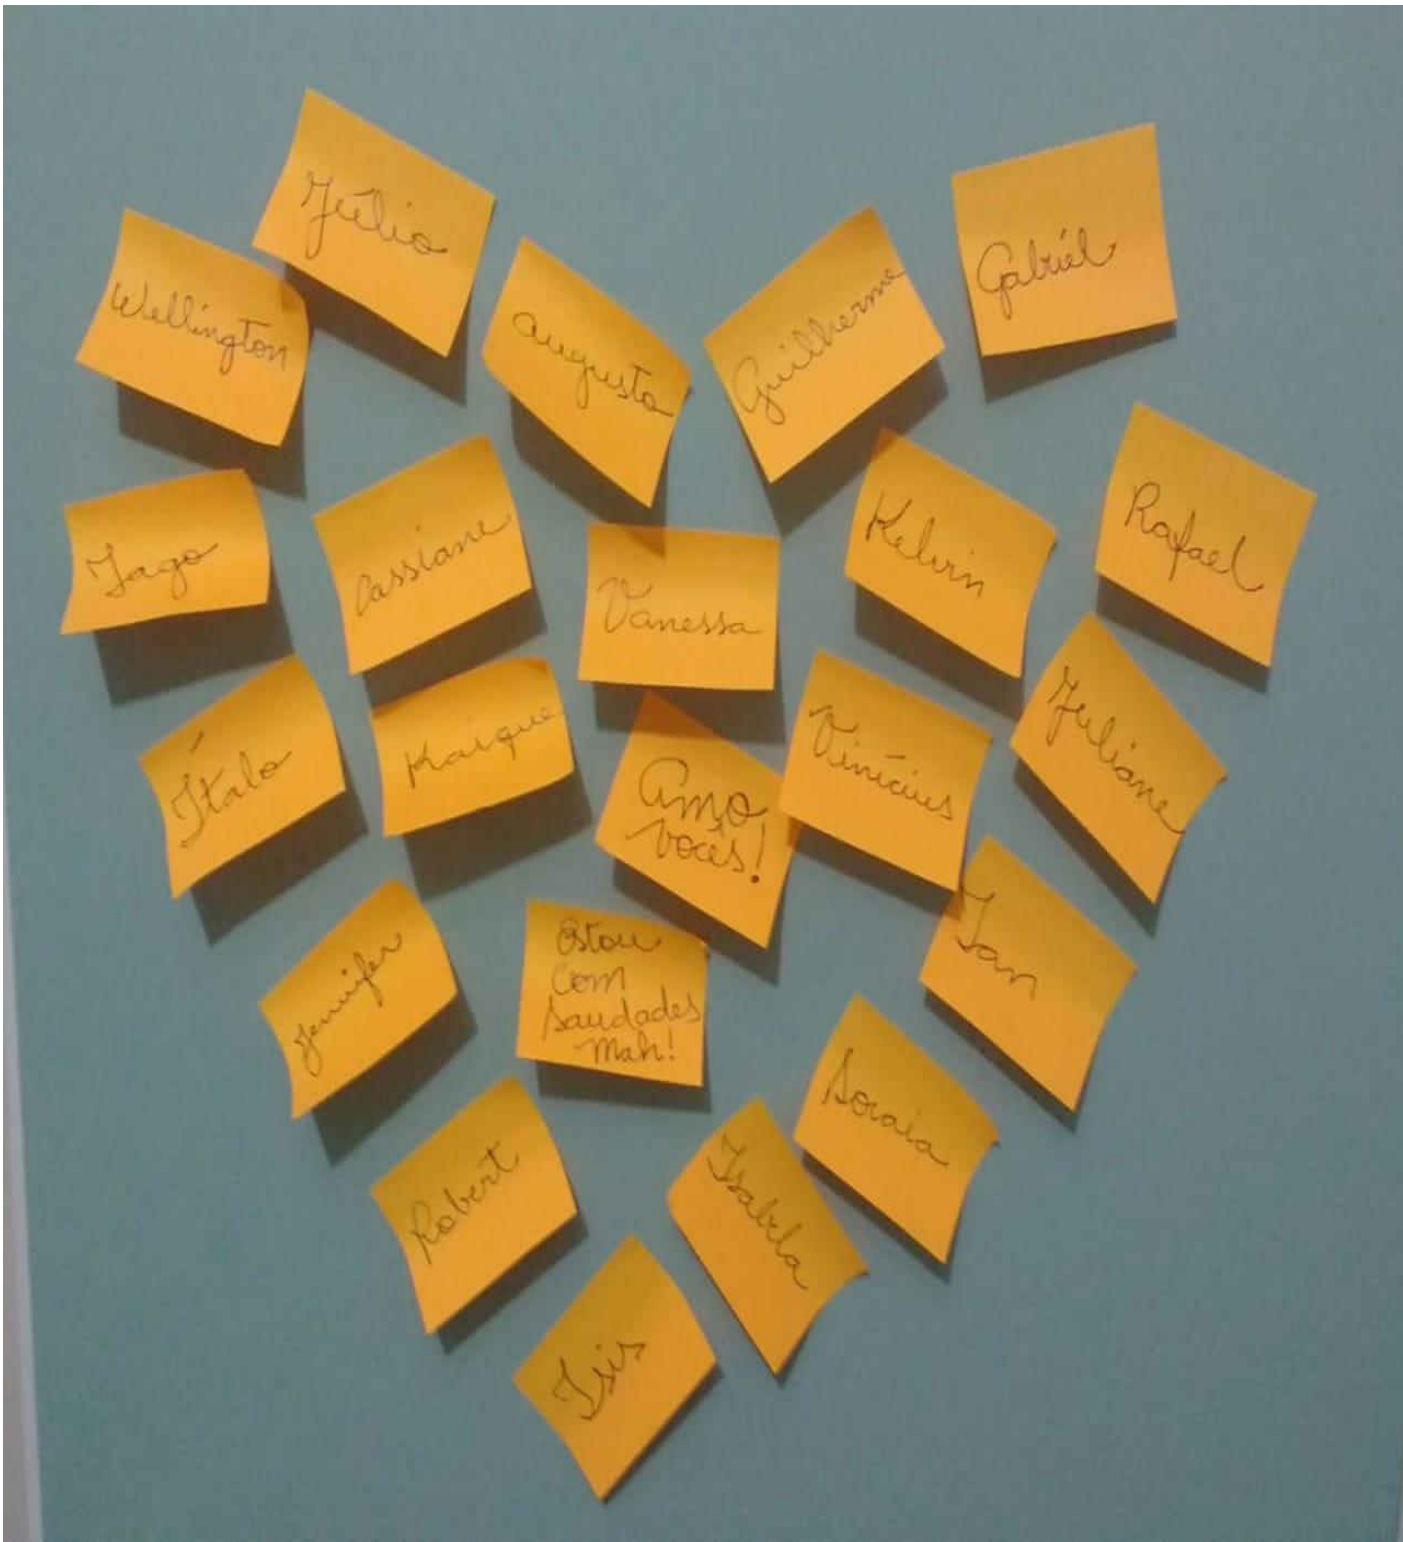 Júlio
Wellington
Augusto
Guilherme
Gabriél
Iago
Cassiane
Vanessa
Kelvin
Rafael
Ítalo
Kaique
Amo
vocês!
Vinícius
Juliane
Jennifer
Estou
com
saudades
mah!
Ian
Robert
Isabela
Soraia
Isis